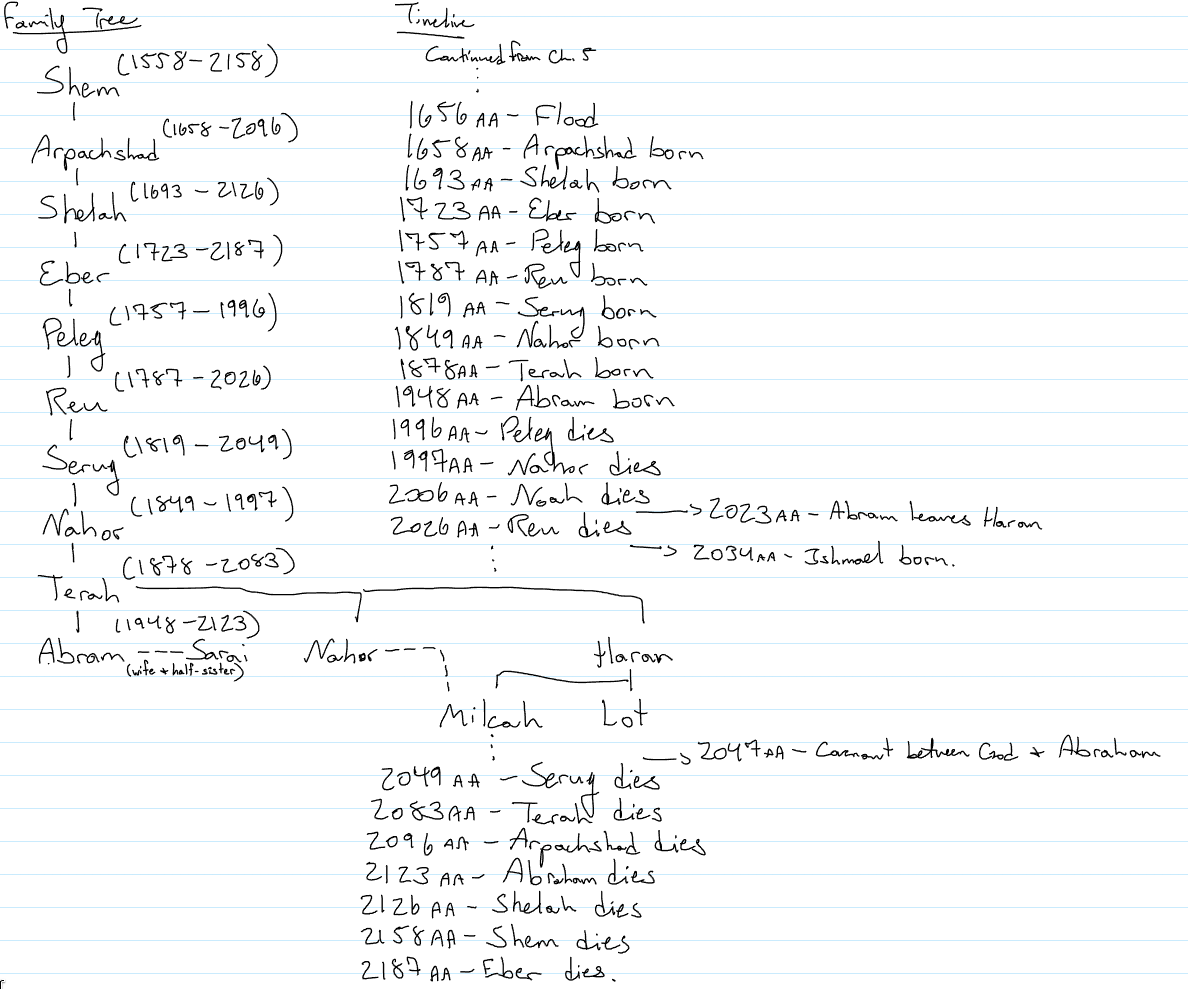 Family Tree
Shem (1558-2158)
Arpachshad (1658-2096)
Shelah (1693-2126)
Eber (1723-2187)
Peleg (1757-1996)
Reu (1787-2026)
Serug (1819-2049)
Nahor (1849-1997)
Terah (1878-2083)
Abram (1948-2123) --- Sarai
(wife + half-sister)
Nahor ---
Haran
Milcah
Lot
Timeline
Continued from Ch. 5
1656 AA - Flood
1658 AA - Arpachshad born
1693 AA - Shelah born
1723 AA - Eber born
1757 AA - Peleg born
1787 AA - Reu born
1819 AA - Serug born
1849 AA - Nahor born
1878 AA - Terah born
1948 AA - Abram born
1996 AA - Peleg dies
1997 AA - Nahor dies
2006 AA - Noah dies
→ 2023 AA - Abram leaves Haran
2026 AA - Reu dies
→ 2034 AA - Ishmael born.
→ 2047 AA - Covenant between God + Abraham
2049 AA - Serug dies
2083 AA - Terah dies
2096 AA - Arpachshad dies
2123 AA - Abraham dies
2126 AA - Shelah dies
2158 AA - Shem dies
2187 AA - Eber dies.